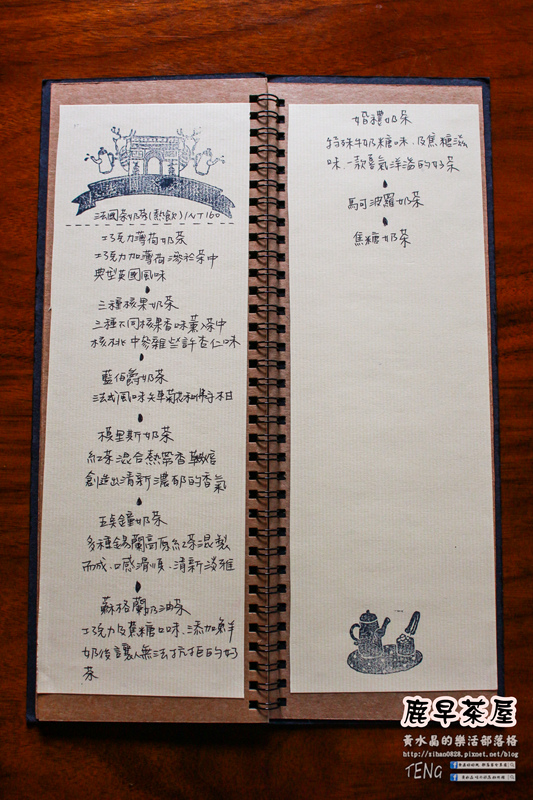 法國茶奶茶(熱飲)/NT160
巧克力薄荷奶茶
巧克力加薄荷淡於茶中
典型英國風味
三種核果奶茶
三種不同核果香味薰入茶中
核桃中參雜些許杏仁味
藍伯爵奶茶
法式風味矢車菊花和佛手柑
模里斯奶茶
紅茶混合熱帶香草
創造出清新濃郁的香氣
五點鐘奶茶
多種錫蘭高原紅茶混製
而成、口感滑順、清新淡雅
蘇格蘭奶油茶
巧克力及蕉糖口味、添加鮮
奶後讓人無法抗拒的好
茶
婚禮奶茶
特殊牛奶糖味、及焦糖滋
味、一款喜氣洋溢的好茶
馬可波羅奶茶
焦糖奶茶
鹿早茶屋
黃水晶的樂活部落格
http://xihan0828.pixnet.net/blog
TENG